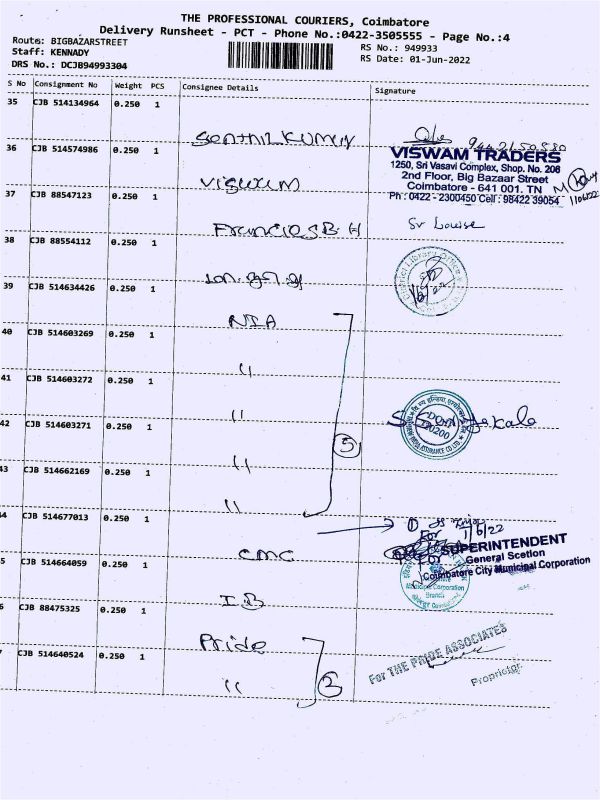 THE PROFESSIONAL COURIERS, Coimbatore
Delivery Runsheet - PCT - Phone No.:0422-3505555 - Page No.:4
Route: BIGBAZARSTREET
Staff: KENNADY
DRS No.: DCJB94993304
RS No.: 949933
RS Date: 01-Jun-2022
S No Consignment No Weight PCS Consignee Details Signature
35 CJB 514134964 0.250 1
Senthil Kumur
9442150530
36 CJB 514574986 0.250 1
Viswum
VISWAM TRADERS
1250, Sri Vasavi Complex, Shop. No. 206
2nd Floor, Big Bazaar Street
Coimbatore - 641 001. TN
Ph : 0422 - 2300450 Cell : 98422 39054
37 CJB 88547123 0.250 1
Francies B H
Sr Louise
38 CJB 88554112 0.250 1
District Library Office
39 CJB 514634426 0.250 1
NIA
40 CJB 514603269 0.250 1
"
41 CJB 514603272 0.250 1
"
42 CJB 514603271 0.250 1
"
5
43 CJB 514662169 0.250 1
"
44 CJB 514677013 0.250 1
CMC
For 1/6/22
SUPERINTENDENT
General Scetion
Coimbatore City Municipal Corporation
5 CJB 514664059 0.250 1
IB
6 CJB 88475325 0.250 1
Pride
For THE PRIDE ASSOCIATES
Proprietor
7 CJB 514640524 0.250 1
"
2